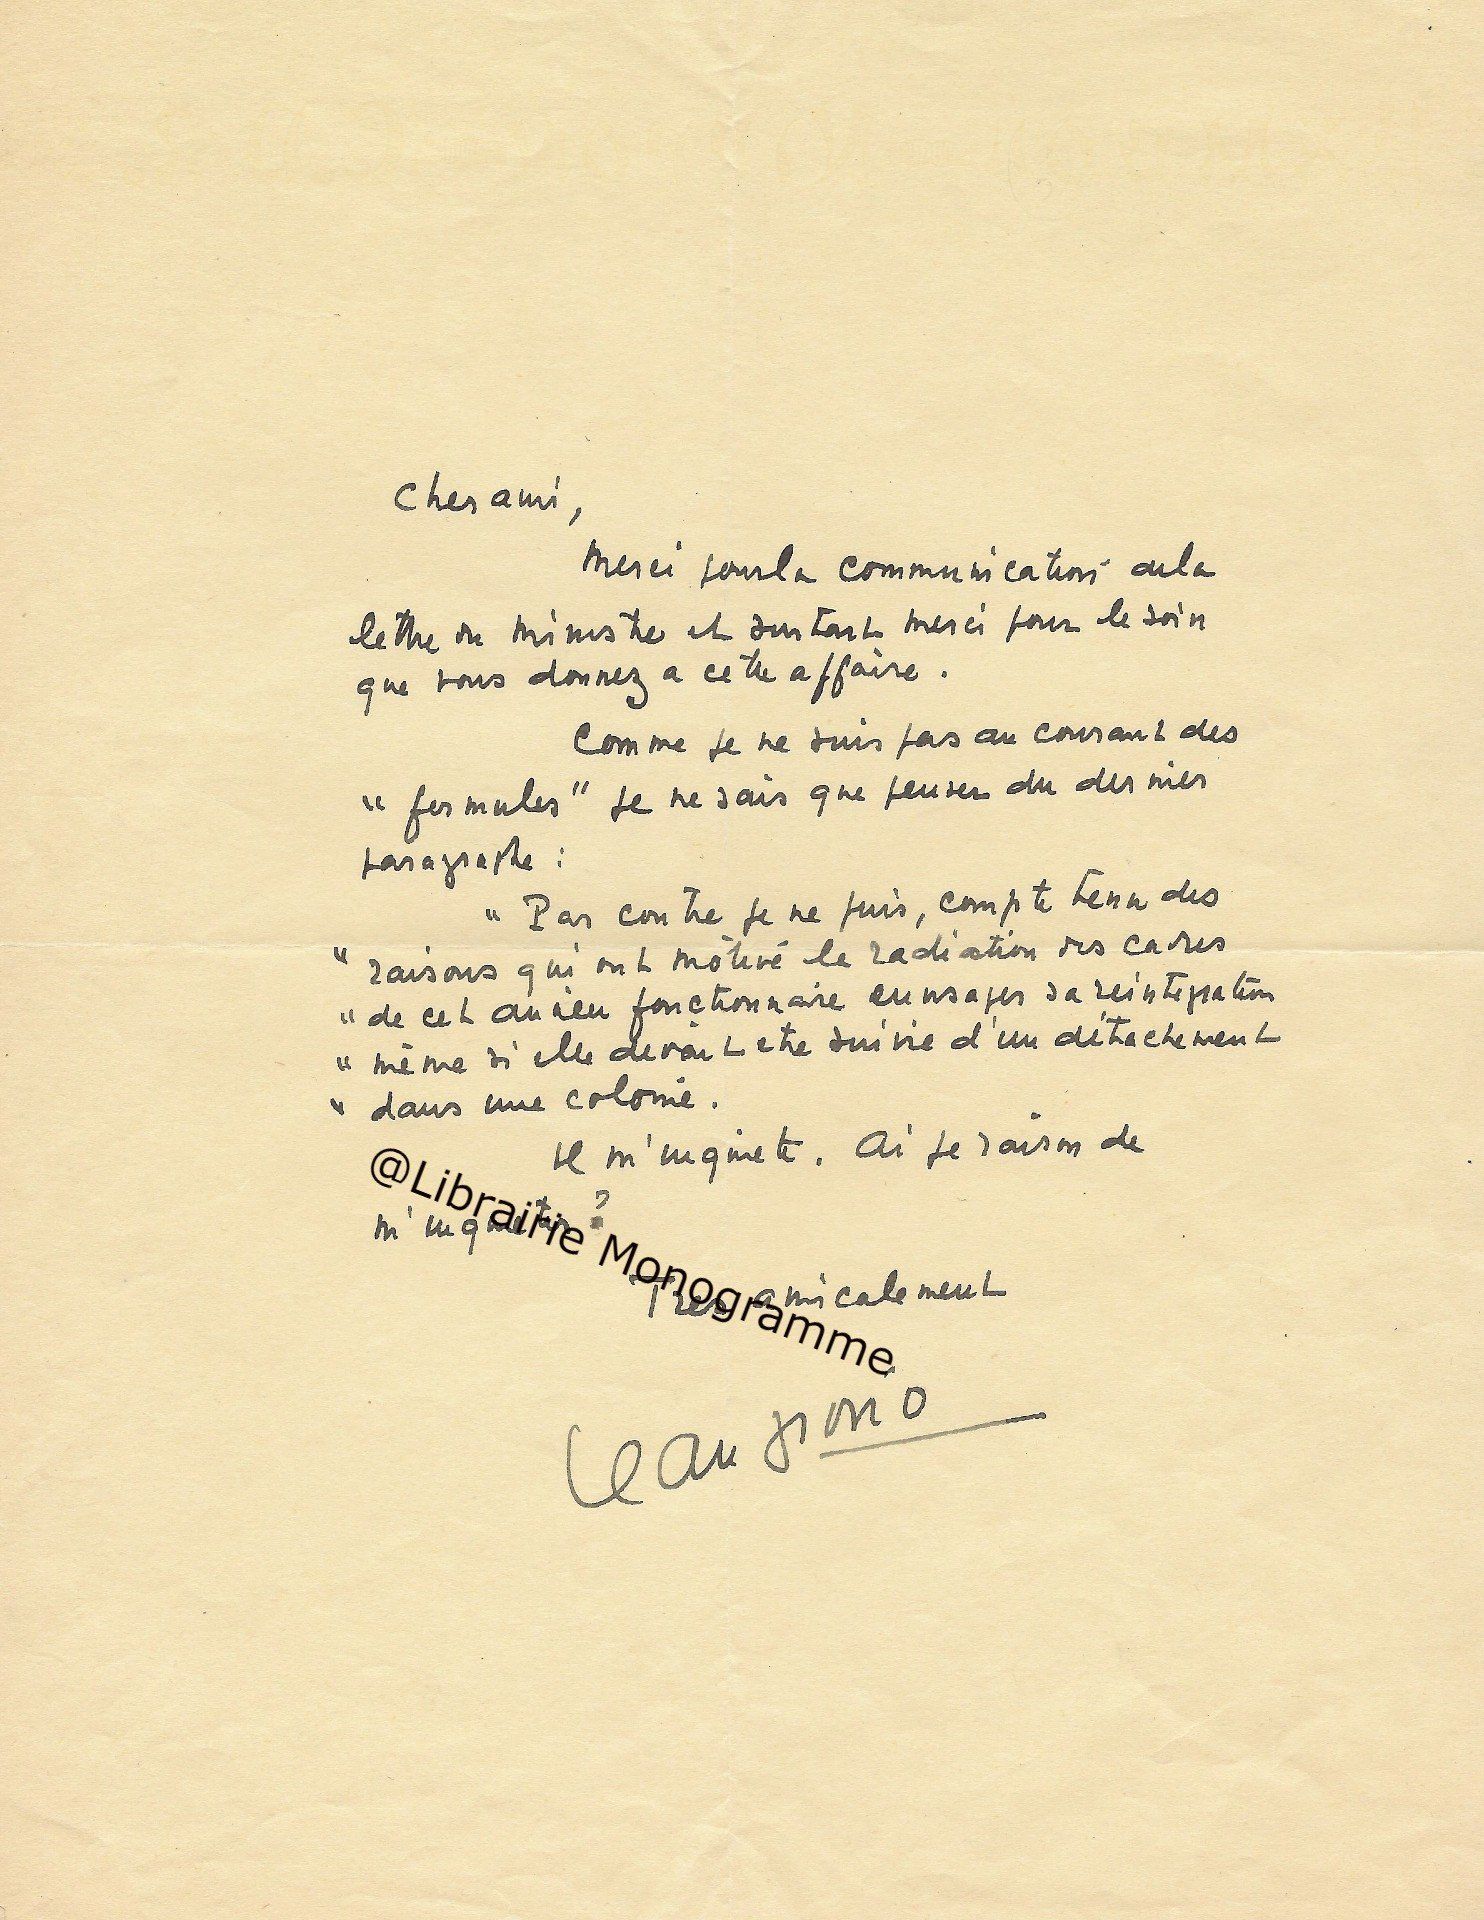 Cher ami,
Merci pour la communication de la
lettre du Ministre et surtout merci pour le soin
que vous donnez a cette affaire.
Comme je ne suis pas au courant des
"formules" je ne sais que penser du dernier
paragraphe :
" Par contre je ne puis, compte tenu des
" raisons qui ont motivé la radiation des cadres
" de cet ancien fonctionnaire envisager sa réintégration
" même si elle devait etre suivie d'un détachement
" dans une colonie.
Il m'inquiete. Ai je raison de
m'inquieter ?
@Librairie Monogramme
Très amicalement
Jean Giono